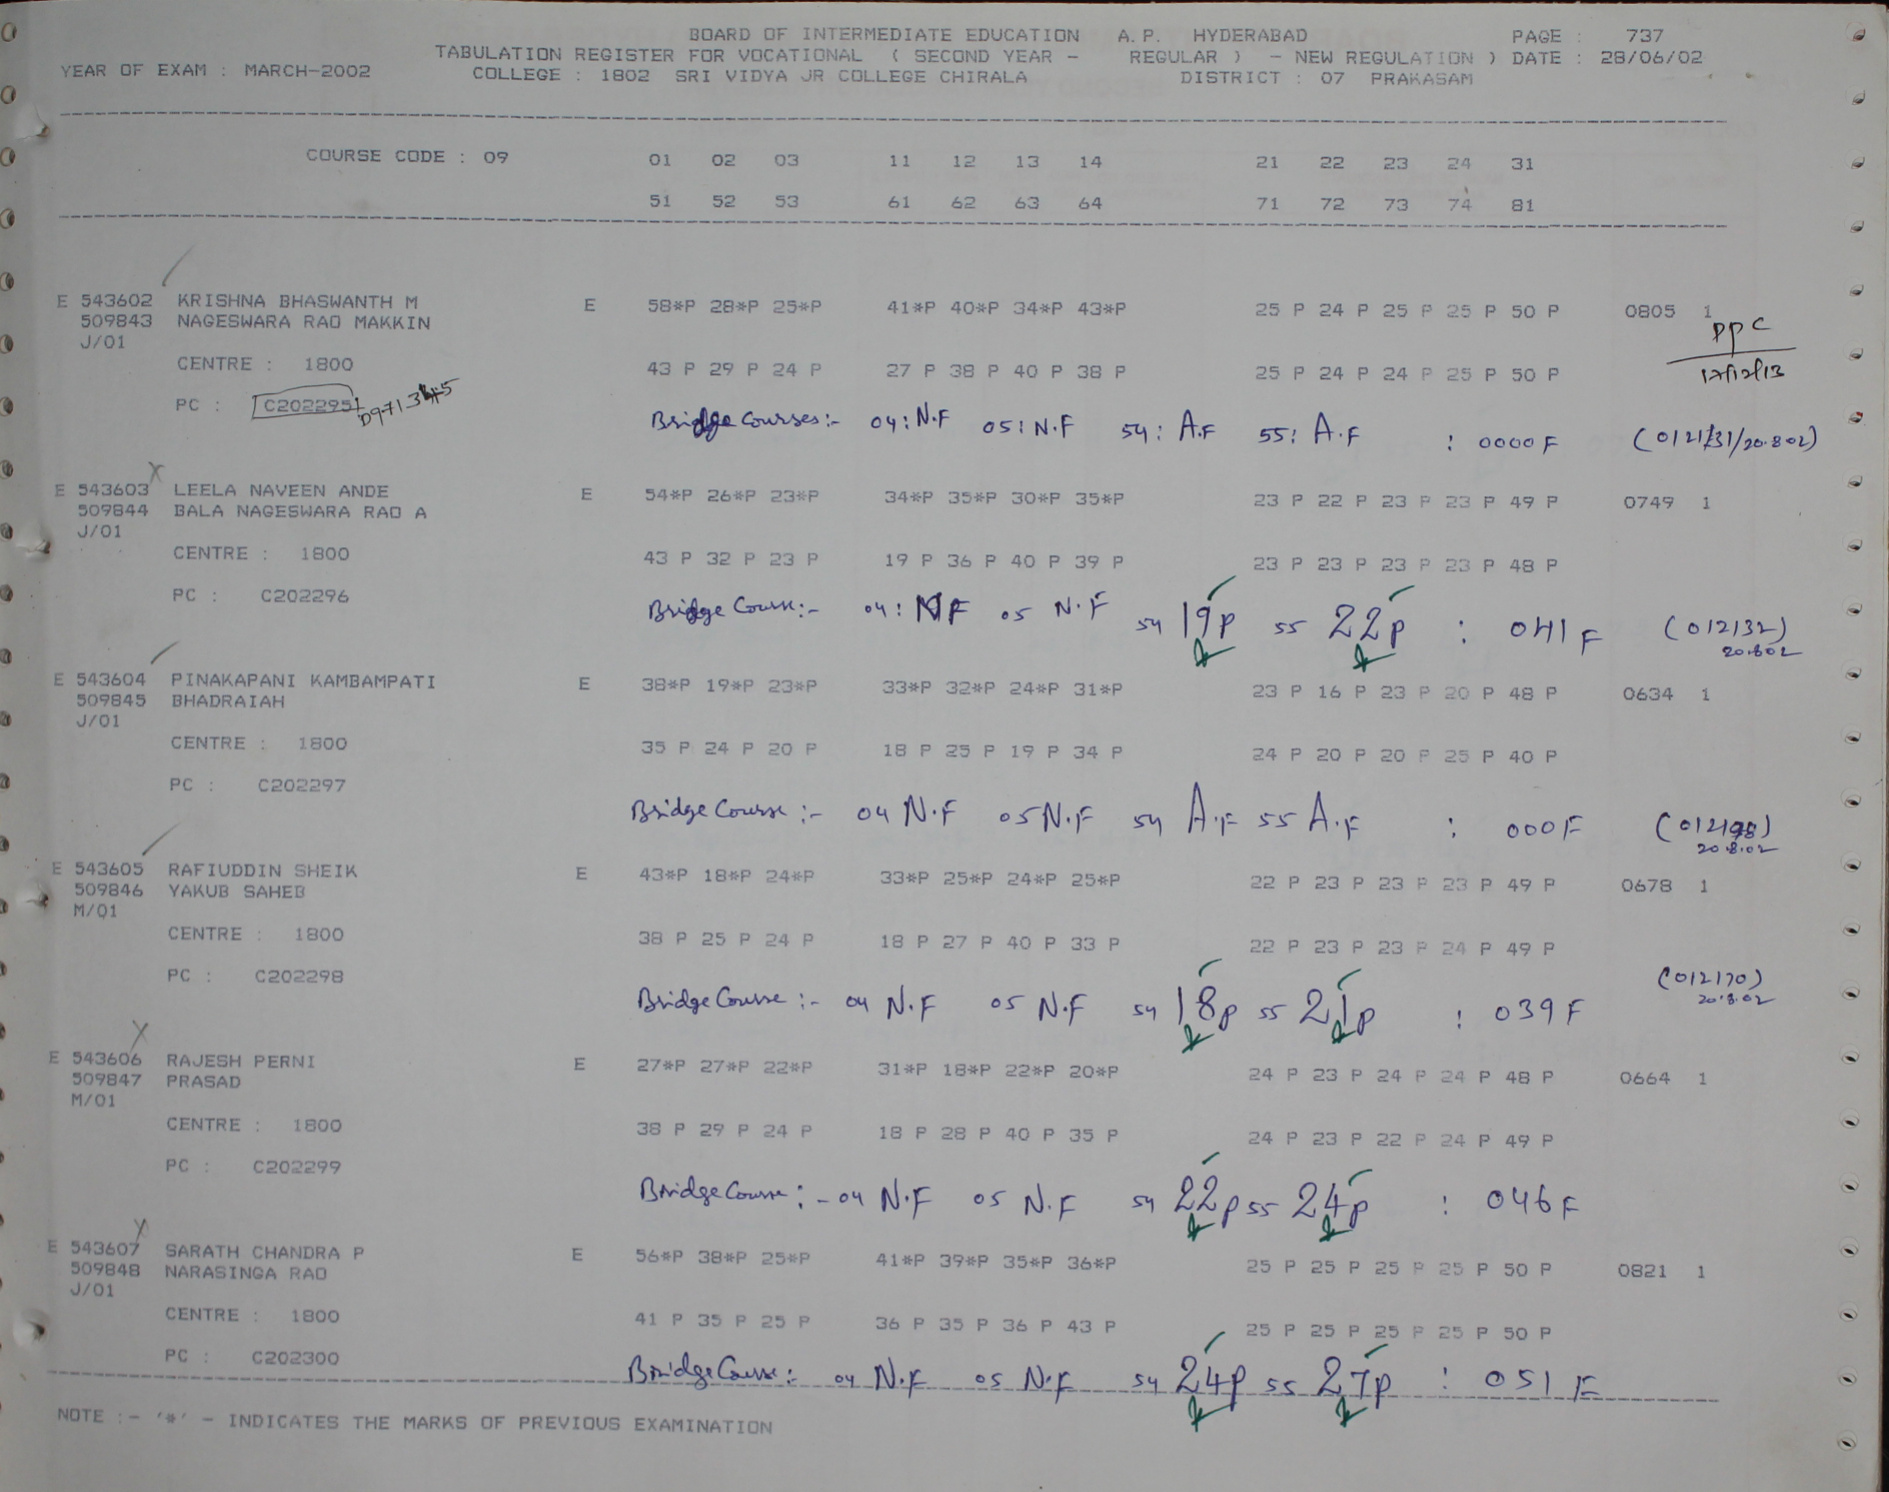 BOARD OF INTERMEDIATE EDUCATION A.P. HYDERABAD PAGE : 737
TABULATION REGISTER FOR VOCATIONAL ( SECOND YEAR - REGULAR ) - NEW REGULATION ) DATE : 28/06/02
YEAR OF EXAM : MARCH-2002 COLLEGE : 1802 SRI VIDYA JR COLLEGE CHIRALA DISTRICT : 07 PRAKASAM
COURSE CODE : 09 01 02 03 11 12 13 14 21 22 23 24 31
51 52 53 61 62 63 64 71 72 73 74 81
E 543602 KRISHNA BHASWANTH M E 58*P 28*P 25*P 41*P 40*P 34*P 43*P 25 P 24 P 25 P 25 P 50 P 0805 1
509843 NAGESWARA RAO MAKKIN PPC
J/01
CENTRE : 1800 43 P 29 P 24 P 27 P 38 P 40 P 38 P 25 P 24 P 24 P 25 P 50 P 17/12/13
PC : C202295
Bridge Courses:- 04: N.F 05: N.F 54: A.F 55: A.F : 0000 F
E 543603 LEELA NAVEEN ANDE E 54*P 26*P 23*P 34*P 35*P 30*P 35*P 23 P 22 P 23 P 23 P 49 P 0749 1
509844 BALA NAGESWARA RAO A
J/01
CENTRE : 1800 43 P 32 P 23 P 19 P 36 P 40 P 39 P 23 P 23 P 23 P 23 P 48 P
PC : C202296
Bridge Course:- 04: NF 05 N.F 54 19P 55 22P : 041 F (012132)
20.8.02
E 543604 PINAKAPANI KAMBAMPATI E 38*P 19*P 23*P 33*P 32*P 24*P 31*P 23 P 16 P 23 P 20 P 48 P 0634 1
509845 BHADRAIAH
J/01
CENTRE : 1800 35 P 24 P 20 P 18 P 25 P 19 P 34 P 24 P 20 P 20 P 25 P 40 P
PC : C202297
Bridge Course :- 04 N.F 05 N.F 54 A.F 55 A.F : 000F
20.8.02
E 543605 RAFIUDDIN SHEIK E 43*P 18*P 24*P 33*P 25*P 24*P 25*P 22 P 23 P 23 P 23 P 49 P 0678 1
509846 YAKUB SAHEB
M/01
CENTRE : 1800 38 P 25 P 24 P 18 P 27 P 40 P 33 P 22 P 23 P 23 P 24 P 49 P
PC : C202298 (012170)
20.8.02
Bridge Course :- 04 N.F 05 N.F 54 18P 55 21P : 039 F
E 543606 RAJESH PERNI E 27*P 27*P 22*P 31*P 18*P 22*P 20*P 24 P 23 P 24 P 24 P 48 P 0664 1
509847 PRASAD
M/01
CENTRE : 1800 38 P 29 P 24 P 18 P 28 P 40 P 35 P 24 P 23 P 22 P 24 P 49 P
PC : C202299
Bridge Course :- 04 N.F 05 N.F 54 22P 55 24P : 046 F
E 543607 SARATH CHANDRA P E 56*P 38*P 25*P 41*P 39*P 35*P 36*P 25 P 25 P 25 P 25 P 50 P 0821 1
509848 NARASINGA RAO
J/01
CENTRE : 1800 41 P 35 P 25 P 36 P 35 P 36 P 43 P 25 P 25 P 25 P 25 P 50 P
PC : C202300
Bridge Course: 04 N.F 05 N.F 54 24P 55 27P : 051 F
NOTE :- '*' - INDICATES THE MARKS OF PREVIOUS EXAMINATION